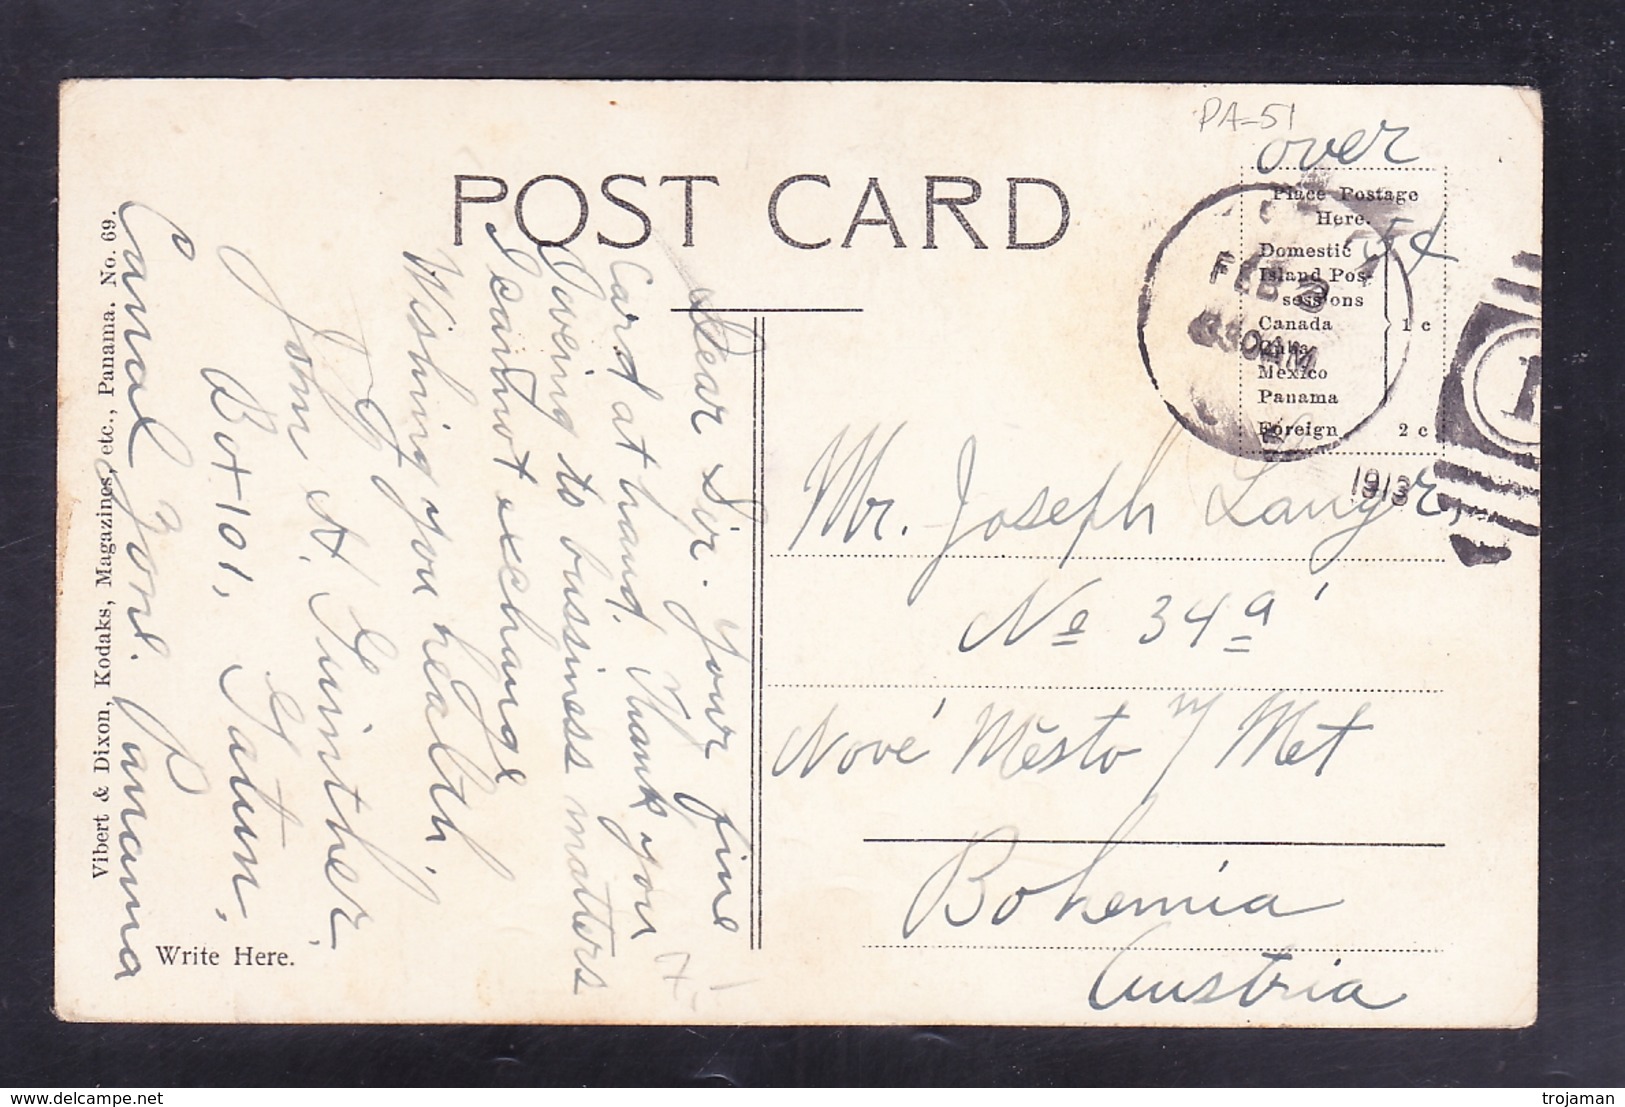 PA-51
over
POST CARD
Place Postage
Here.
Domestic
Island Pos-
sessions
Canada
Cuba
Mexico
Panama
1 c
Foreign 2 c
5¢
FEB 3
830 AM
1913
Dear Sir. Your fine
Card at hand. Thank you
Owing to bussiness matters
I cannot exchange
Wishing you health.
John A. Guinther,
Box 101, Gatun,
Canal Zone. Panama
Write Here.
Vibert & Dixon, Kodaks, Magazines, etc., Panama. No. 69.
Mr. Joseph Langr
No 34a
Nové Město n/ Met
Bohemia
Austria
trojaman